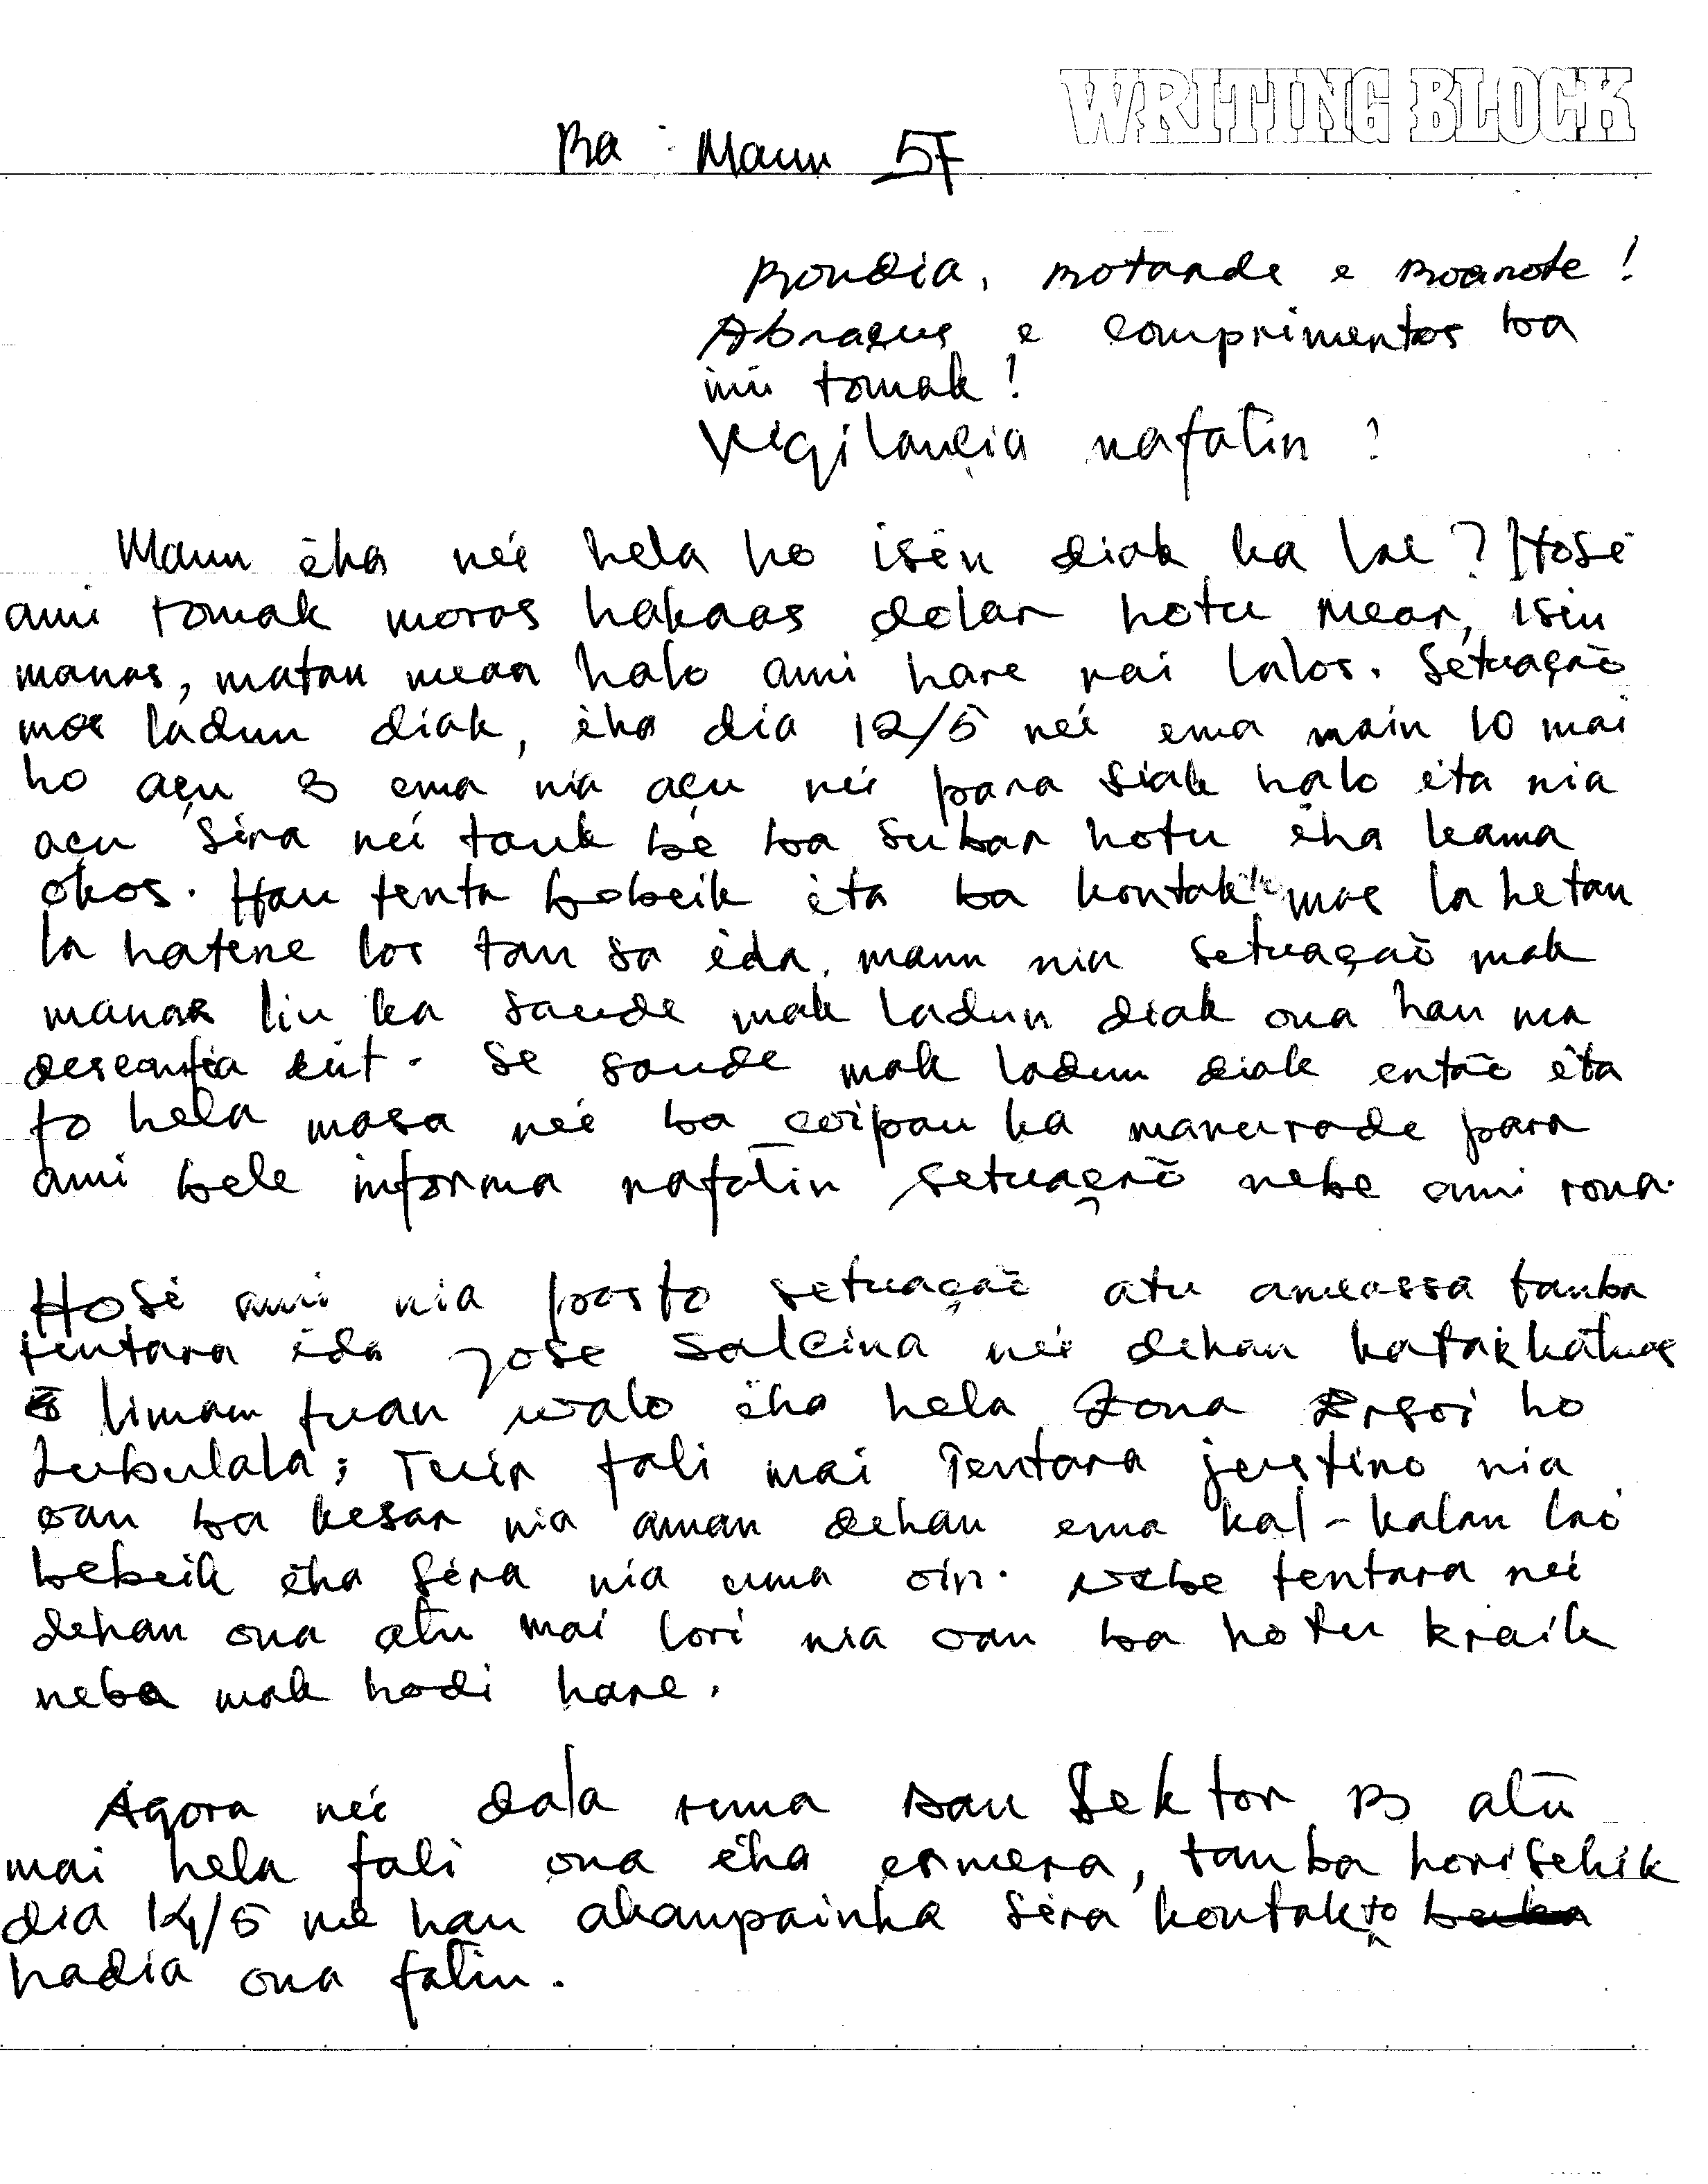 WRITING BLOCK
Ba : Maun 57
Bondia, Botarde e Boanote !
Abraçus e comprimentos ba
imi tomak !
Vigilancia nafatin !
Maun iha neé hela ho isin diak ka lae ? Hosé
ami tomak moras hakaas dolar hotu mear, isin
manas, matan mean halo ami hare rai lalos. Setuação
mos ladun diak, iha dia 12/5 neé ema main 10 mai
ho açu 3 ema nia açu neé para siak halo ita nia
açu sira neé tauk bé ba subar hotu iha kama
okos. Hau tenta bebeik ita ba kontak mas la hetan
la hatene los tan sa ida, maun nia setuação mak
manas liu ka saude mak ladun diak ona hau ma
desconfia eut. Se saude mak ladun diak então ita
fo hela masa neé ba coipau ka manurade para
ami bele informa nafatin setuação nebe ami rona.
Hosé ami nia posto setuação atu ameassa tamba
tentara ida Jose Salcina neé dehan katak katuas
limam tuan walo iha hela Zona Ergoi ho
Lubulala; Tuir fali mai Tentara justino nia
oan ba kesar nia aman dehan ema kal-kalan laó
bebeik iha séra nia uma oin. Nebe tentara neé
dehan ona atu mai lori nia oan ba hotu kraik
neba mak hodi hare.
Agora neé dala ruma Dan Sektor B atu
mai hela fali ona iha ermera, tamba horisehik
dia 14/5 né hau akaupainha séra kontakto
hadia ona fatin.